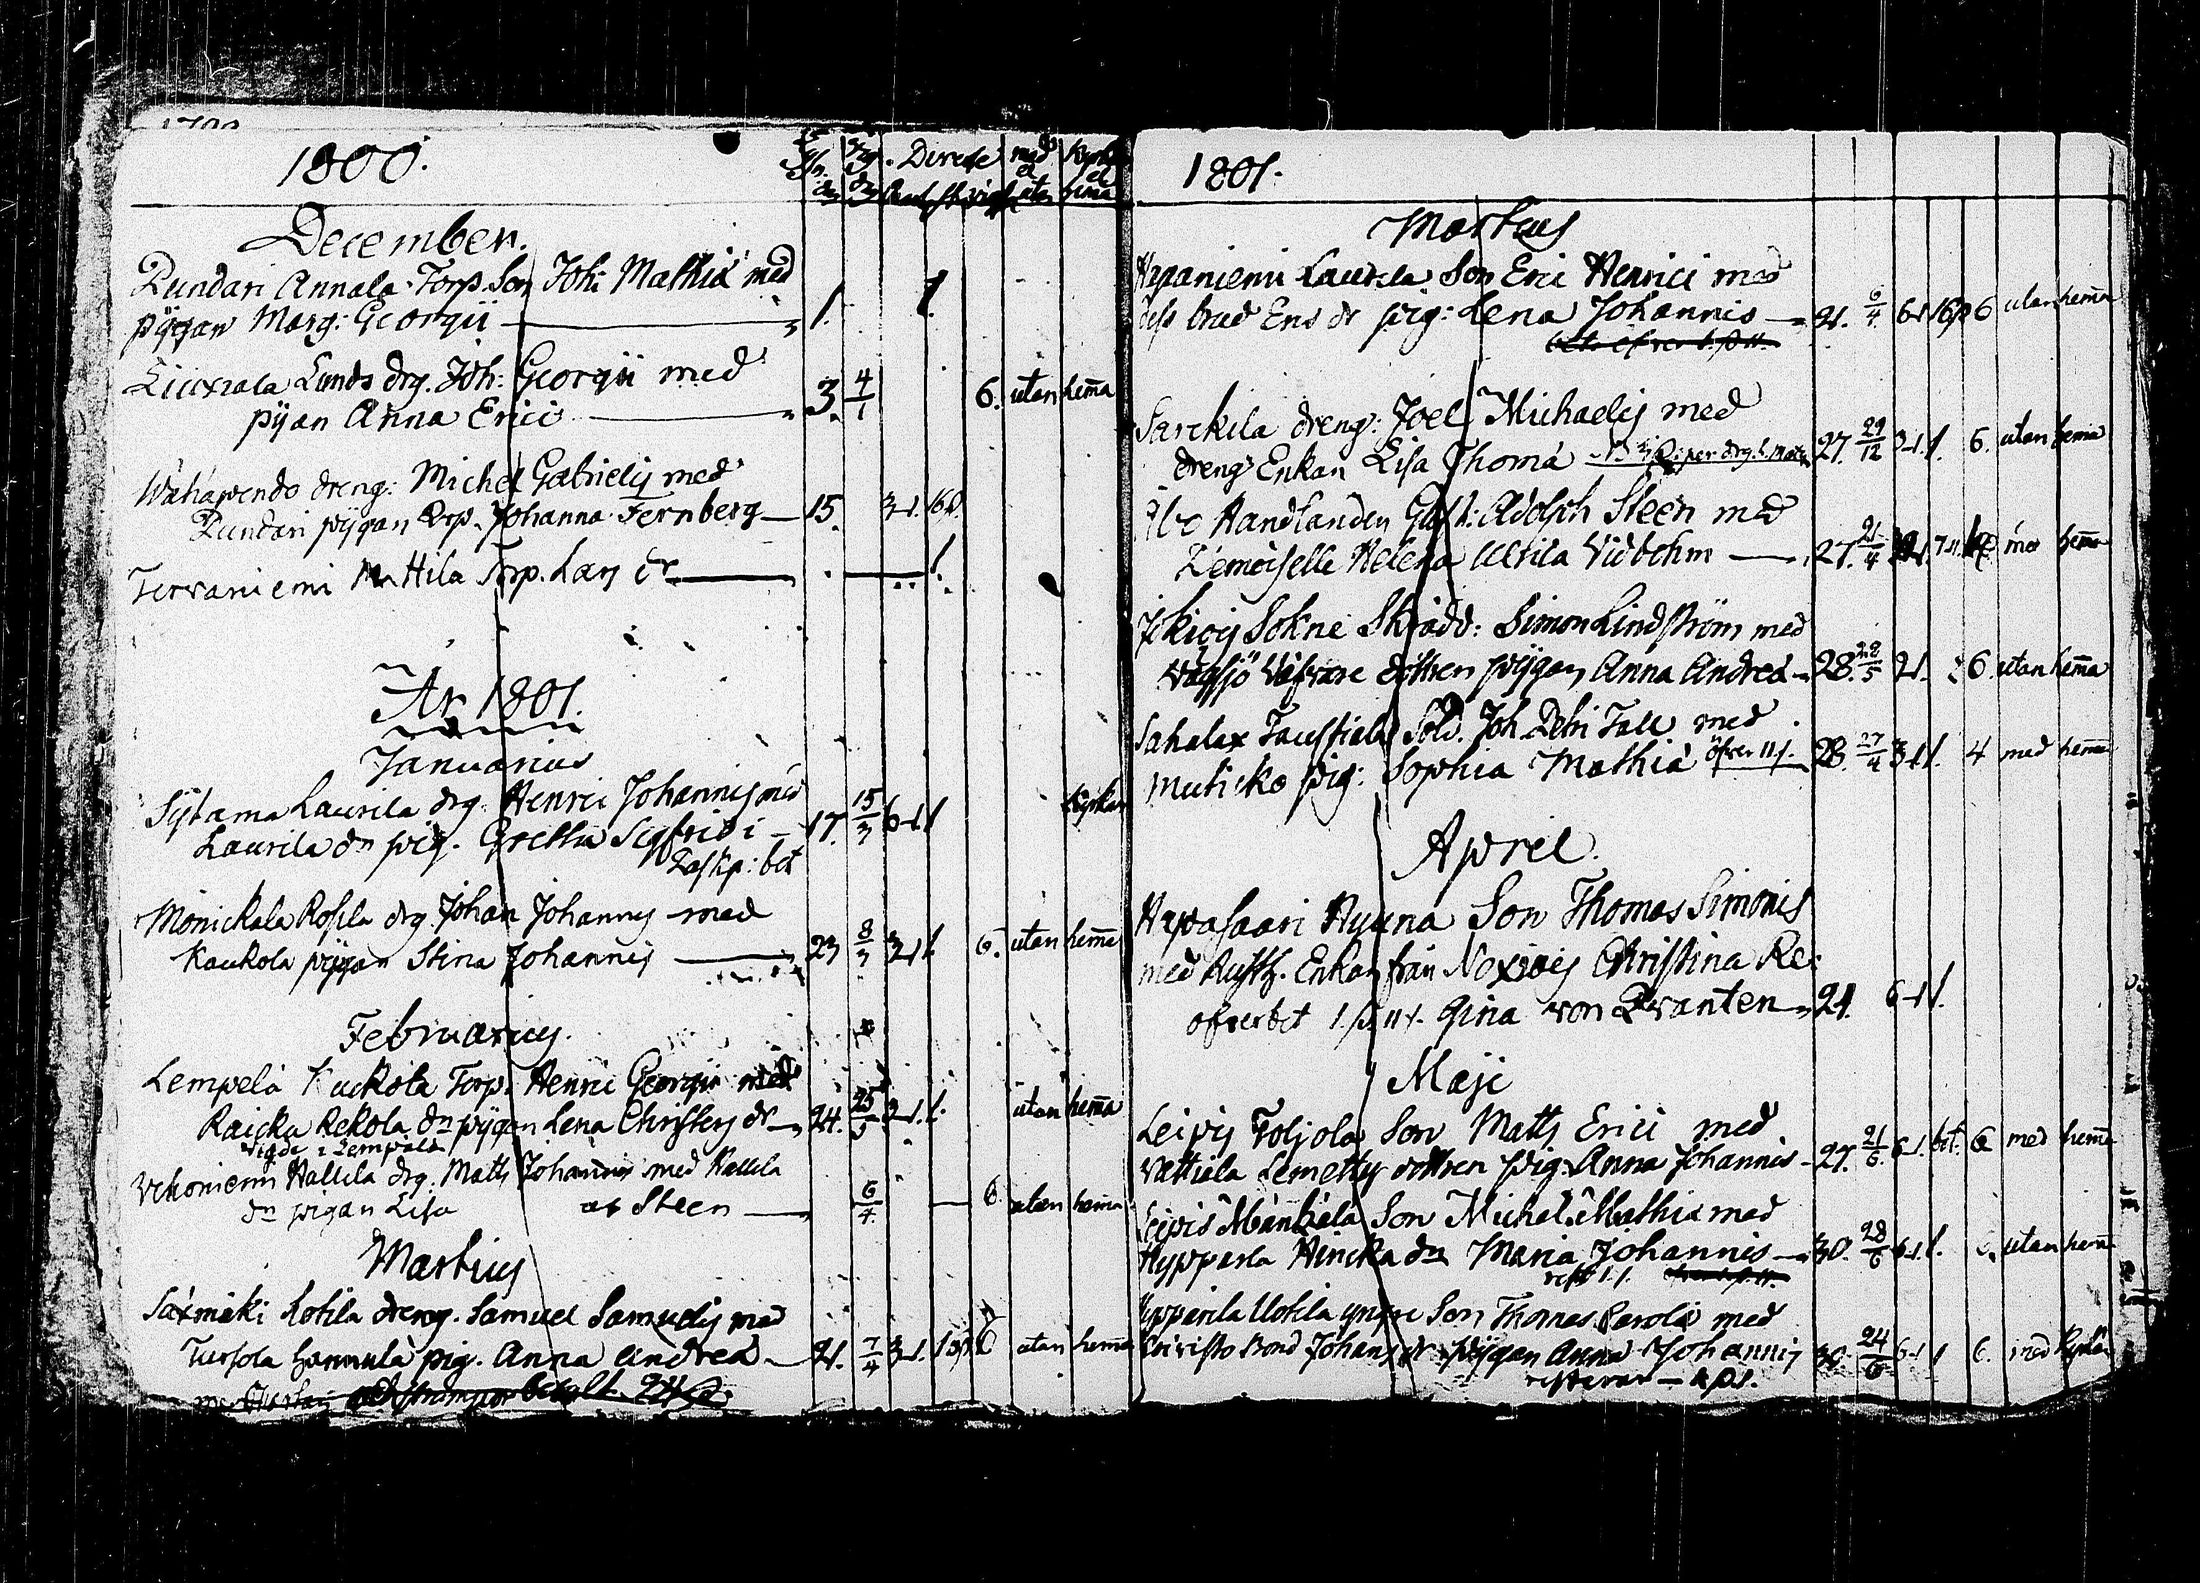 1800.
December.
Pundari Annala Torp. Son Joh: Mathiæ med
pygan Marg: Georgii 1.
Liuxiala Lunds drg. Joh: Georgii med
pyan Anna Erici 3. 4/1 6. utan hema
Wahawendo dreng: Michel Gabrielis med
Pundari pygan Johanna Fernberg 15. 3 16
Tervaniemi Mattila Torp. Lars
År 1801.
Januarius
Sytama Laurila drg. Henric Johannis med
Laurila dn pig. Gretha Sigfridi 17. 15/3 6 1 Kyrkan
bet
Monickala Rossla drg. Johan Johannis med
Kaukola pygan Stina Johannis 23 8/3 3 1 6. utan hema
Februarius.
Lempelä Torp. Henric Georgii med
Raicka Rekola dn pygan Lena Christers dr 24. 25/5 3 1. utan hema
vigde i Lempälä
Hallila drg. Matts Johannis med Hallila
dn pigan Lisa af Steen 6/4 6 utan hema
Martius
Saxmäki Lotila dreng. Samuel Samuelis med
Tursola Hannula pig. Anna Andreæ 21. 7/4 3 1. 6 utan hema
betalt
1801.
Martius
Laurila Son Eric Henrici med
dess brud Enk dr pig: Lena Johannis 21. 6/4 6 1 16 6 utan hema
Sarckila dreng: Joel Michaelis med
dreng Enkan Lisa Thomæ 27. 29/12 3 1 6. utan hema
Åbo Handlanden Gust: Adolph Steen med
Demoiselle Helena Ulrica Widbohm 27. 21/4 med hema
Jokiois Sokne Skrädd: Simon Lindström med
dottren pygan Anna Andreæ 28. 28/5 21. 6 utan hema
Sahalax Sold. Joh. Petri Tall med
Muticko pig: Sophia Mathiæ öfver 11 28. 27/4 3 1 4 med hema
April.
Hapasaari Hyuna Son Thomas Simonis
med Rustg. Enkan från Christina Re:
ofverbet gina von Qvanten 21. 6 1
Maji
Leipis Toljola Son Matts Erici med
Vattiala Lemetty dottren pig. Anna Johannis 27. 21/6. 6 1. bet. 6 med hema
Leipis Mankala Son Michel Mathiæ med
Hypperla Hincka dn Maria Johannis 30. 28/6 6 1 6. utan hema
rest 1.
yngre Son Thomas Caroli med
Bond Johans dr pygan Anna Johannis 30. 24/6 6 1 6. med Kyrkan
resterar